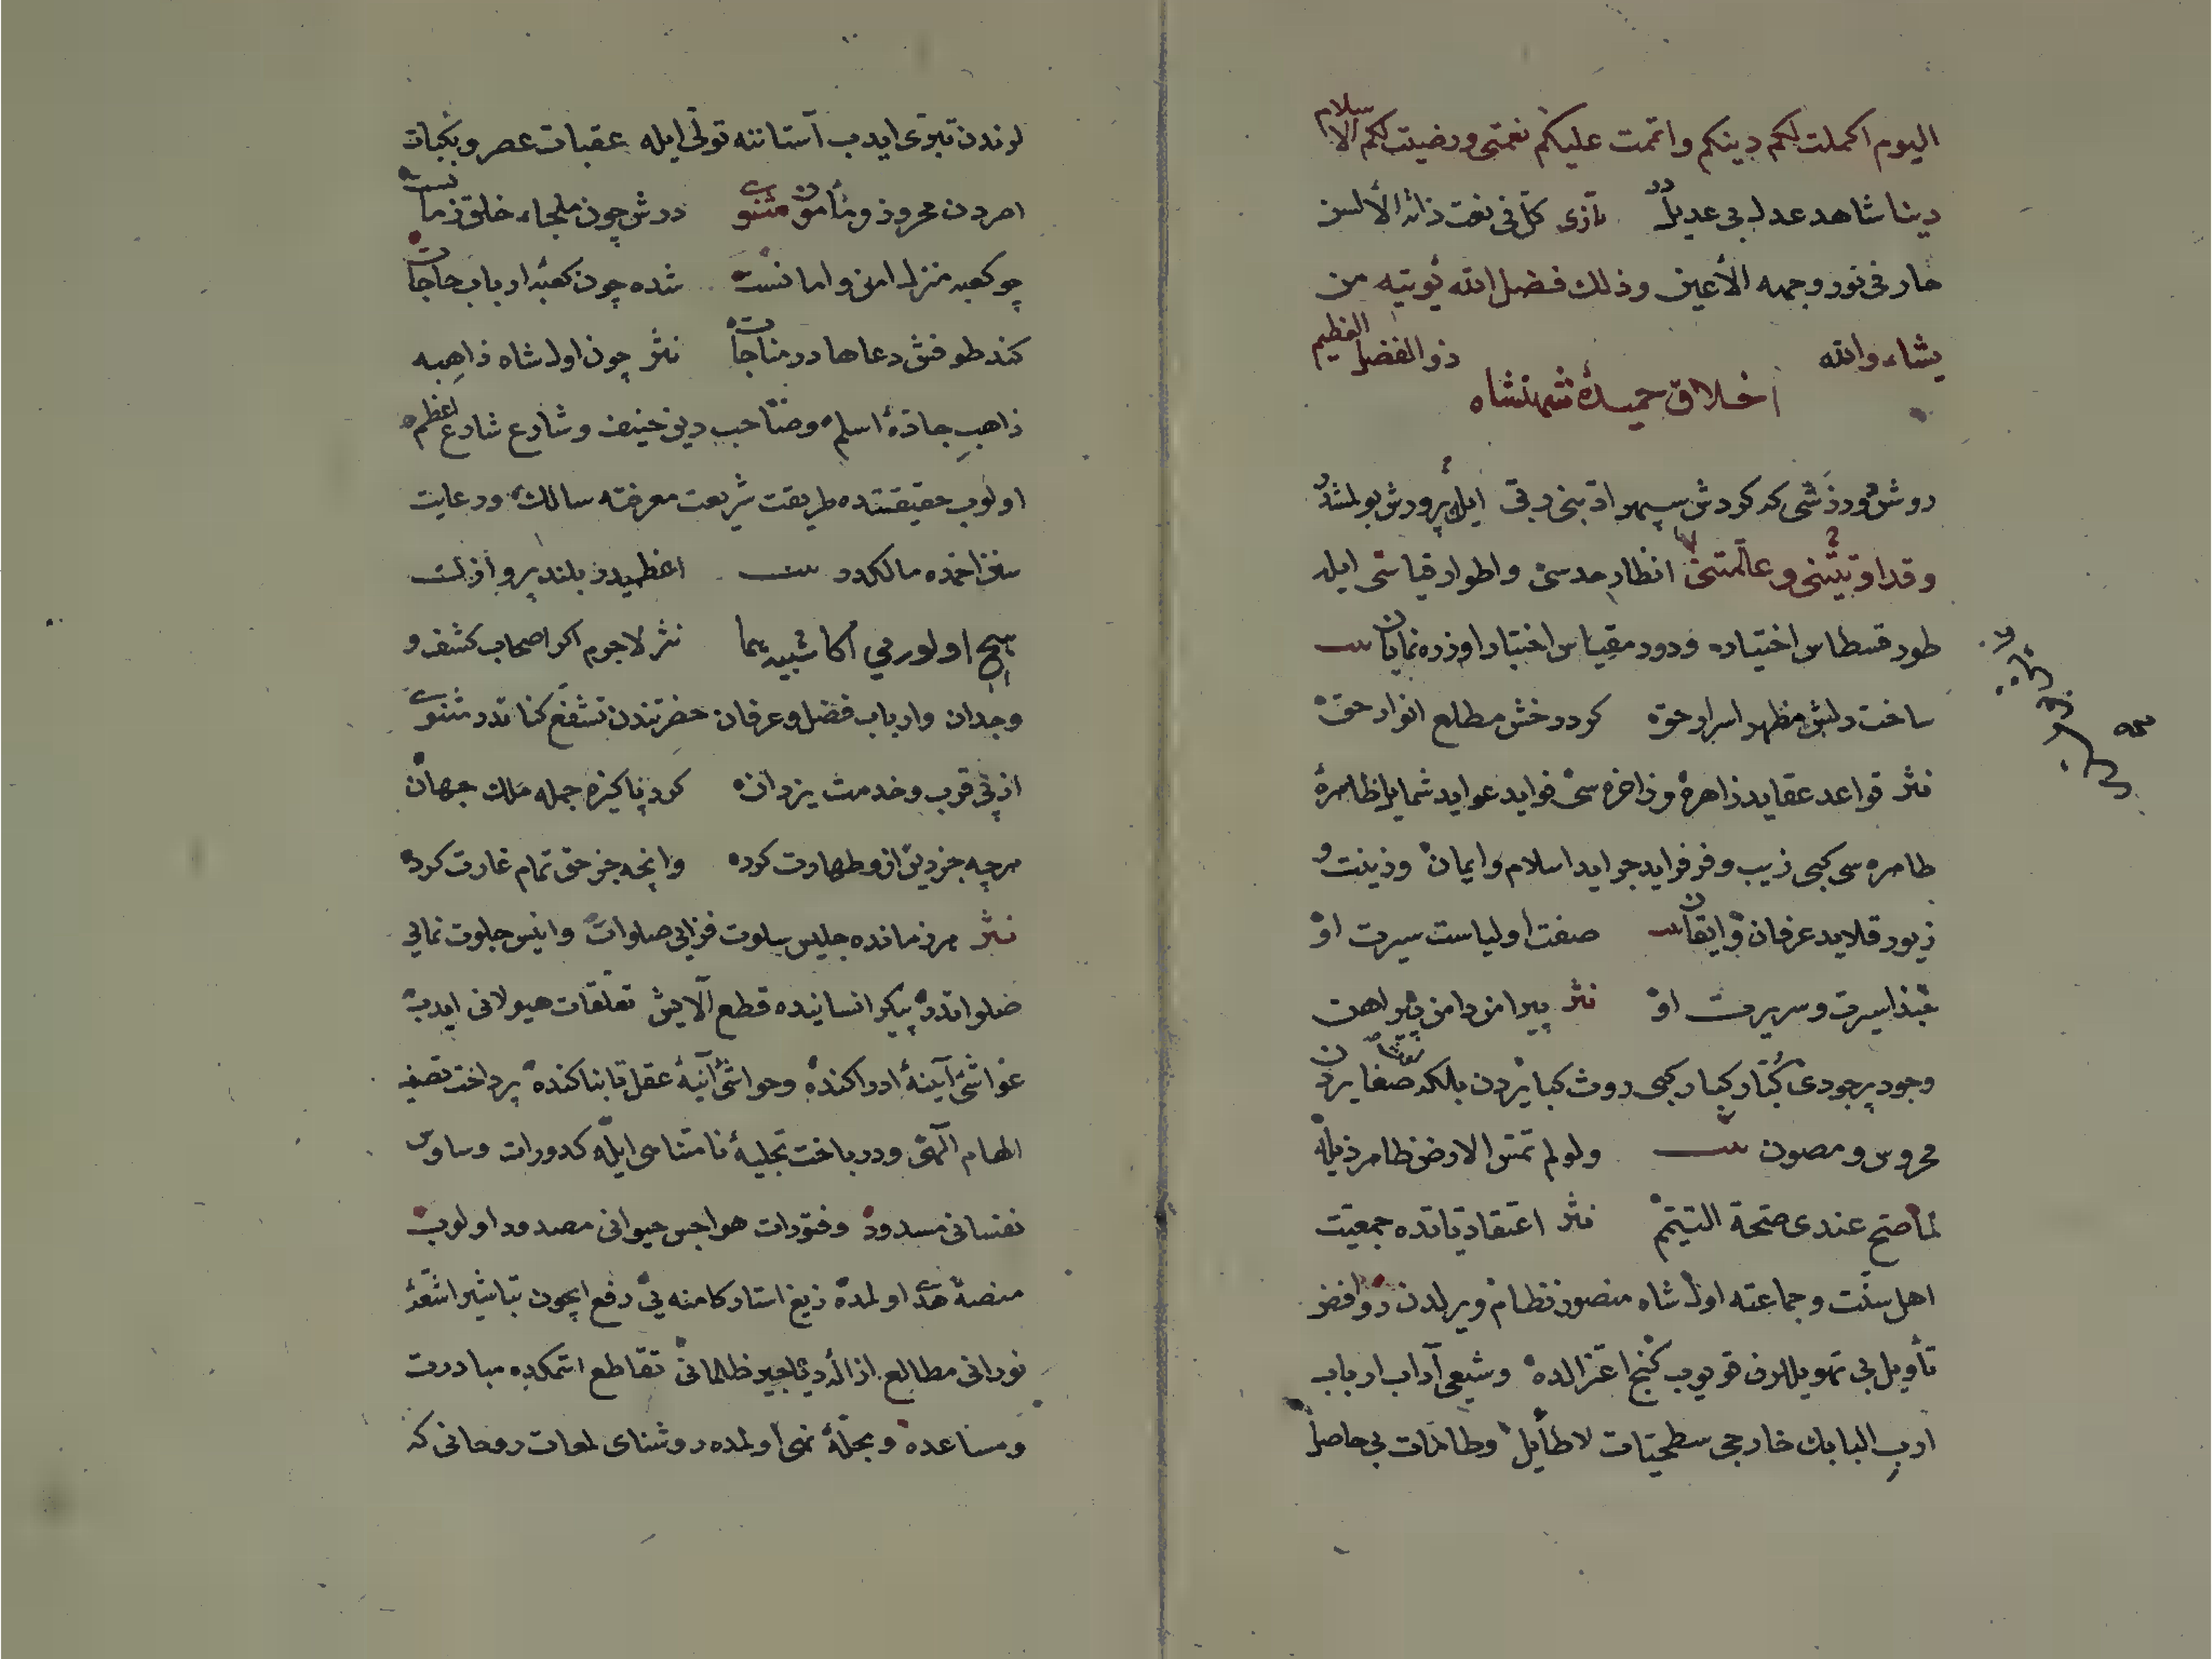 اليوم اكملت لكم دينكم واتممت عليكم نعمتى ورضيت لكم الاسلام
دينا شاهد عدل بى عديلدر كل فى نعت ذاته الألسن
حار فى نور وجهه الأعين وذلك فضل الله يؤتيه من
يشاء والله ذو الفضل العظيم
اخلاق حميدۀ شهنشاه
ايله پرورش بولمشدر
وقد اوتيتنى وعلمتنى انظار حدسى واطوار قياسى ايله
طور قسطاس اختياره ودور مقياس اختبار اوزره نمايان
ساخت دلش مظهر اسرار حق كرد رخش مطلع انوار حق
نثر قواعد عقايد زاهره وزاخره سى فوايد عوايد شمايل ظاهرۀ
طاهره سى كبى زيب وفر فرايد جرايد اسلام وايمان وزينت و
زيور قلايد عرفان وايقان صفت اولياست سيرت او
حبذا سيرت وسريرت او نثر پيرامن دامن پيراهن
وجود پرجودى كبار كبى روث كبايردن بلكه صغايردن
محروس ومصون ولو لم تمس الارض ظاهر ذيله
لما صح عندى صحة التيمم نثر اعتقادياتده جمعيت
اهل سنت وجماعته اول شاه منصور نظام ويرلدن روافض
تأويل بى تهويللرن قويوب كنج اعتزالده وشيعى آداب ارباب
ادب البابك خارجى سطحيات لاطايل وطامات بى حاصل
لرندن تبرى ايدب آستاننه تولى ايله عقبات عصر ونكبات
امردن محروز ومأمون مثنوى درش چون ملجاء خلق زمانست
چو كعبه منزل امن وامانست شده چون كعبه ارباب حاجات
كند طوفش دعاها در مناجات نثر چون اول شاه ذاهبه
ذاهب جادۀ اسلم وصاحب دين حنيف وشارع شارع اعظم
اولوب حقيقتده طريقت شريعت معرفته سالك ورعايت
مالكدر اعظميدر بلند پروازلك
هيچ اولورمي اكا شبيه هما نثر لاجرم اكر اصحاب كشف و
وجدان وارباب فضل وعرفان حضرتندن مثنوى
از پى قرب وخدمت يزدان كرد پاكيزه جمله ملك جهان
هرچه جز دين ازو طهارت كرده وانچه جز حق تمام غارت كرده
نثر هر زمانده جليس سلوت فزاى صلوات وانيس جلوت نماى
خلواتدر پيكر انسانيده قطع آلايش تعلقات هيولانى ايدب
غواشئ آينۀ ادراكنده وحواشئ آنيۀ عقل تابناكنده پرداخت تصفيه
الهام آلهى ودرباخت تجليۀ نامتناهى ايله كدورات وساوس
نفسانى مسدود وفتورات هواجس حيوانى مصدود اولوب
منصۀ اولمده زيغ استار كامنه يى رفع ايچون تباشير اشعۀ
نورانى مطالع ازالۀ دياجير ظلمانى تقاطع اتمكده مبادرت
ومساعده ومجلۀ اولمده روشناى لمعات روحانى كه